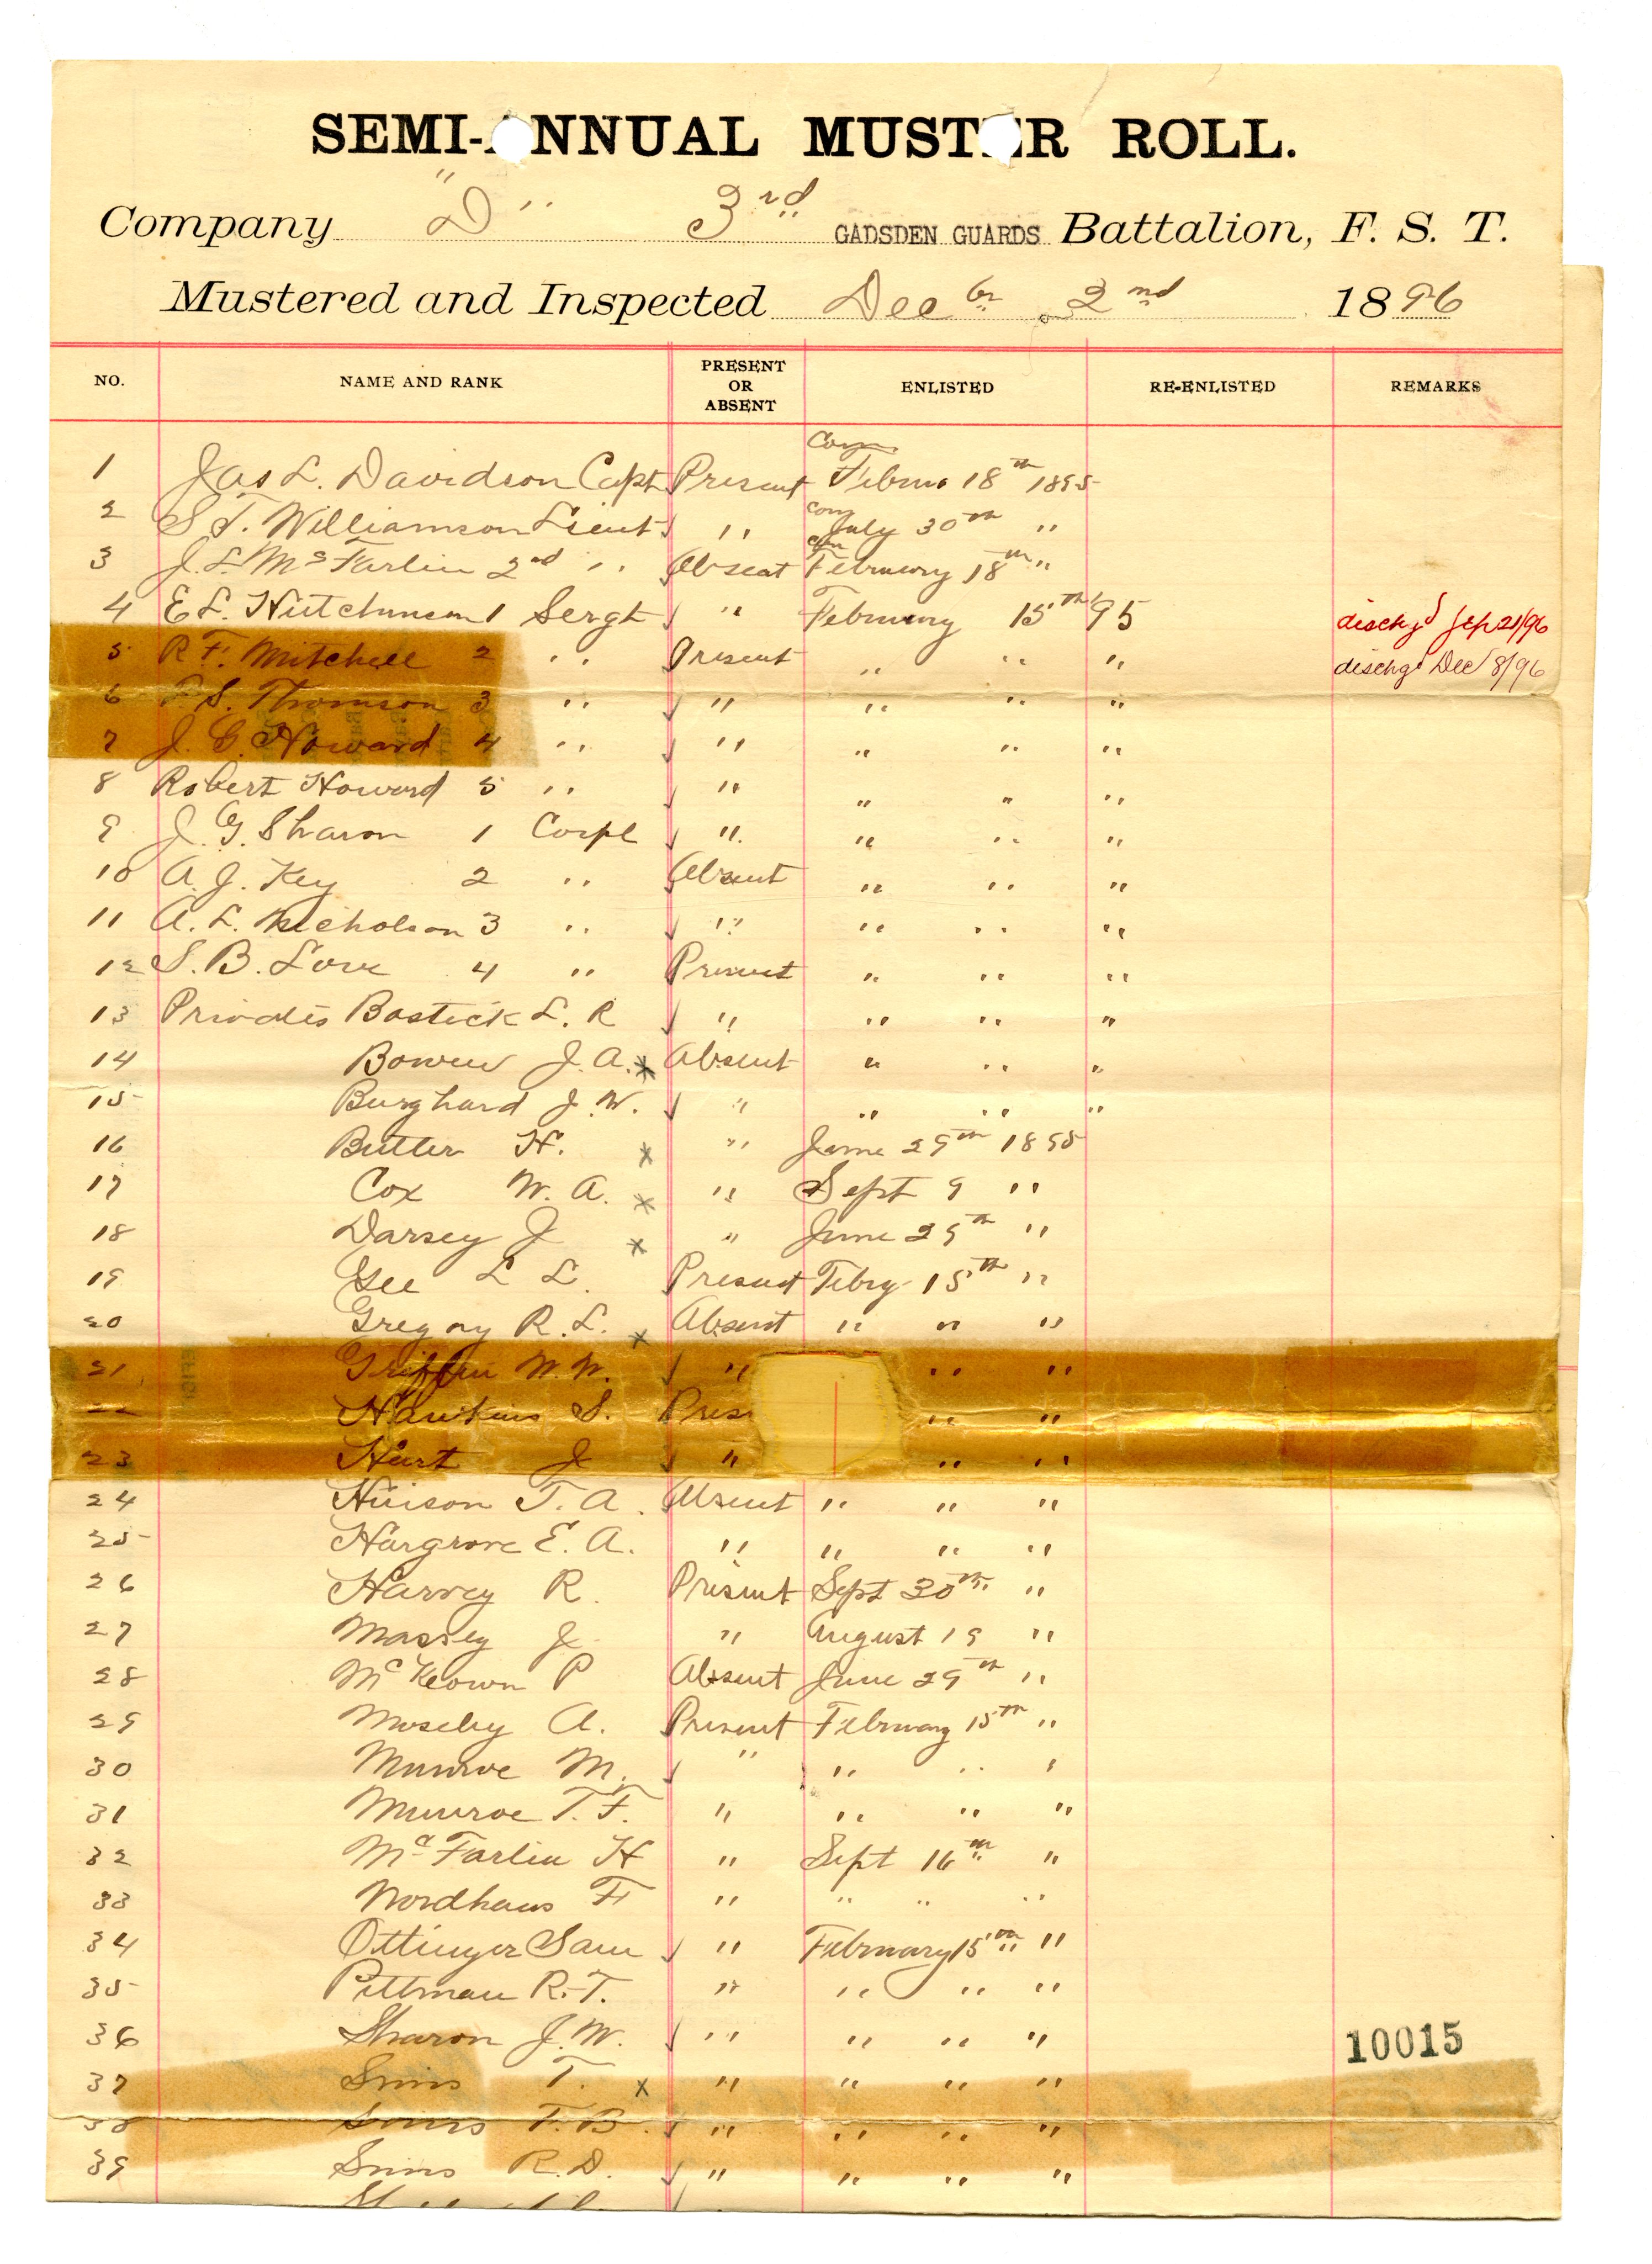 SEMI-ANNUAL MUSTER ROLL.
Company "D" 3rd GADSDEN GUARDS Battalion, F. S. T.
Mustered and Inspected Decbr 2nd 1896
NO. NAME AND RANK PRESENT OR ABSENT ENLISTED RE-ENLISTED REMARKS
Com
1 Jas L. Davidson Capt Present Februa 18th 1895
Com
2 S. T. Williamson Lieut " July 30th "
Com
3 J. L. McFarlin 2nd " Absent February 18th "
4 E L. Hutchinson 1 Sergt " February 15th 95 dischgd Sep 21/96
5 R F. Mitchell 2 " Present " " " dischgd Dec 8/96
6 S. Thomson 3 " " " " "
7 J. C. Howard 4 " " " " "
8 Robert Howard 5 " " " " "
9 J. G. Sharon 1 Corpl " " " "
10 A. J. Key 2 " Absent " " "
11 A. L. Nicholson 3 " " " " "
12 S. B. Love 4 " Present " " "
13 Privates Bostick L. R " " " "
14 Bowen J. A. x Absent " " "
15 Burghard J. W. " " " "
16 Butler H. x " June 29th 1895
17 Cox W. A. x " Sept 9 "
18 Darsey J x " June 29th "
19 Gee L L. Present Febry 15th "
20 Gregory R. L. x Absent " " "
21 Griffin W. W. " " "
22 Hawkins S. Pres " "
23 Hart J " " "
24 Hinson T. A. Absent " " "
25 Hargrove E. A. " " " "
26 Harvey R. Present Sept 30th "
27 Massey J " August 19 "
28 McKeown P Absent June 29th "
29 Moseley A. Present February 15th "
30 Munroe M. " " " "
31 Munroe T. F. " " " "
32 McFarlin H " Sept 16th "
33 Nordhaus F " " " "
34 Ottinger Sam " February 15th "
35 Pittman R. T. " " " "
36 Sharon J. W. " " " "
10015
37 Sims T. x " " " "
38 Sims T. B. " " " "
39 Sims R. D. " " " "